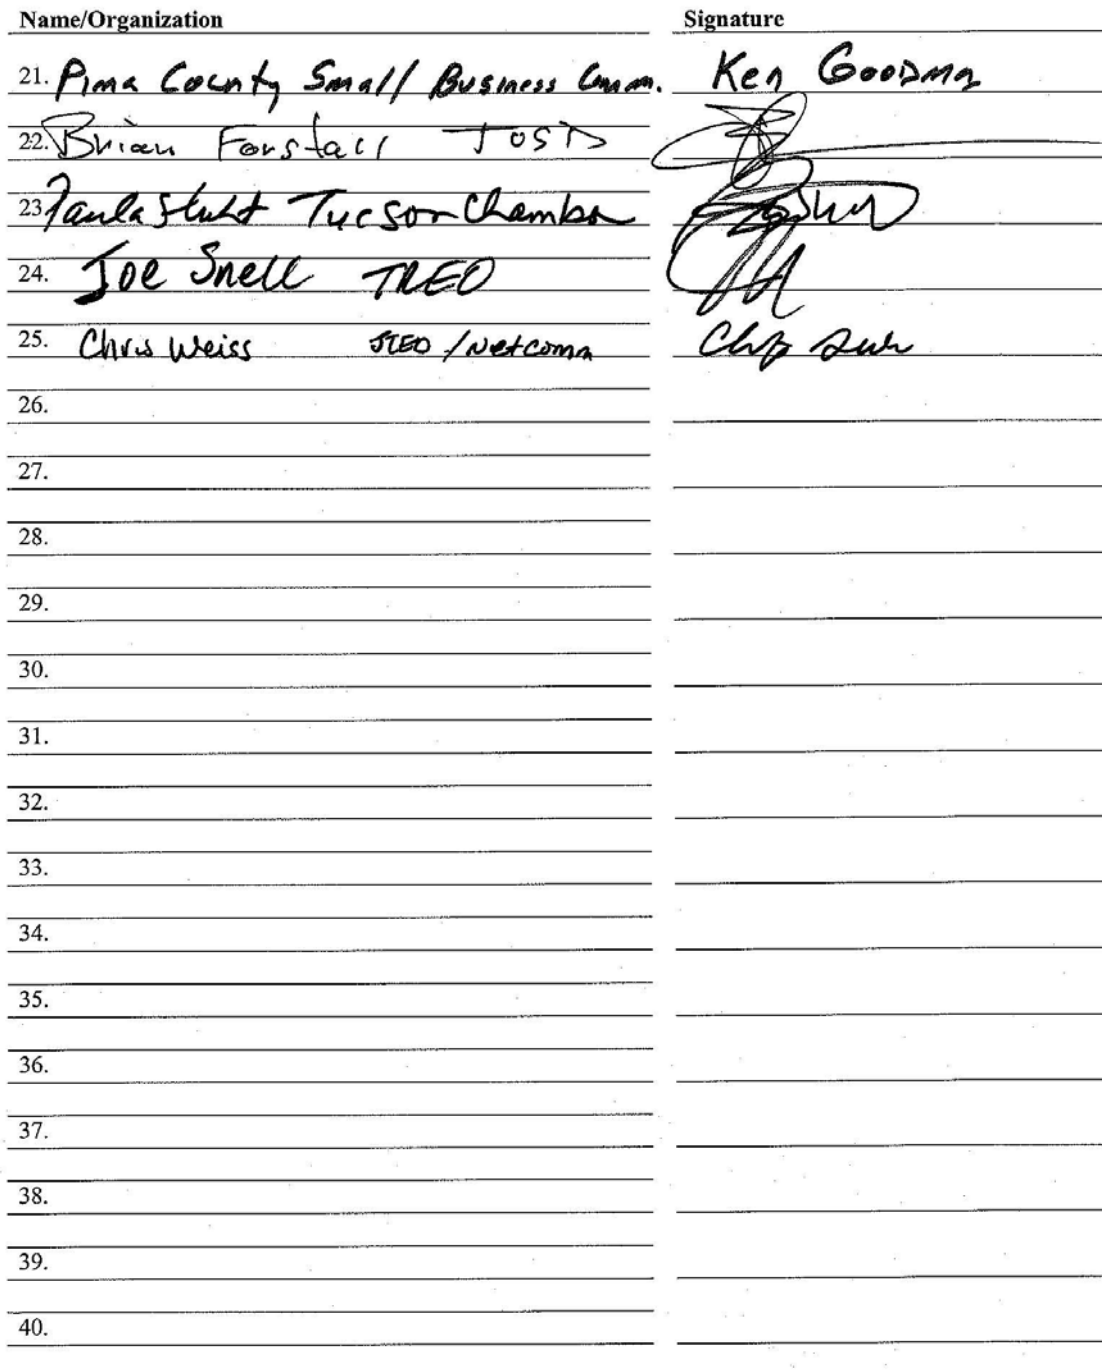 Name/Organization Signature
21. Pima County Small Business Comm. Ken Goodman
22. Brian Forstall
23. Paula Stuht Tucson Chamber
24. Joe Snell TREO
25. Chris Weiss JTED / Netcomm
26.
27.
28.
29.
30.
31.
32.
33.
34.
35.
36.
37.
38.
39.
40.